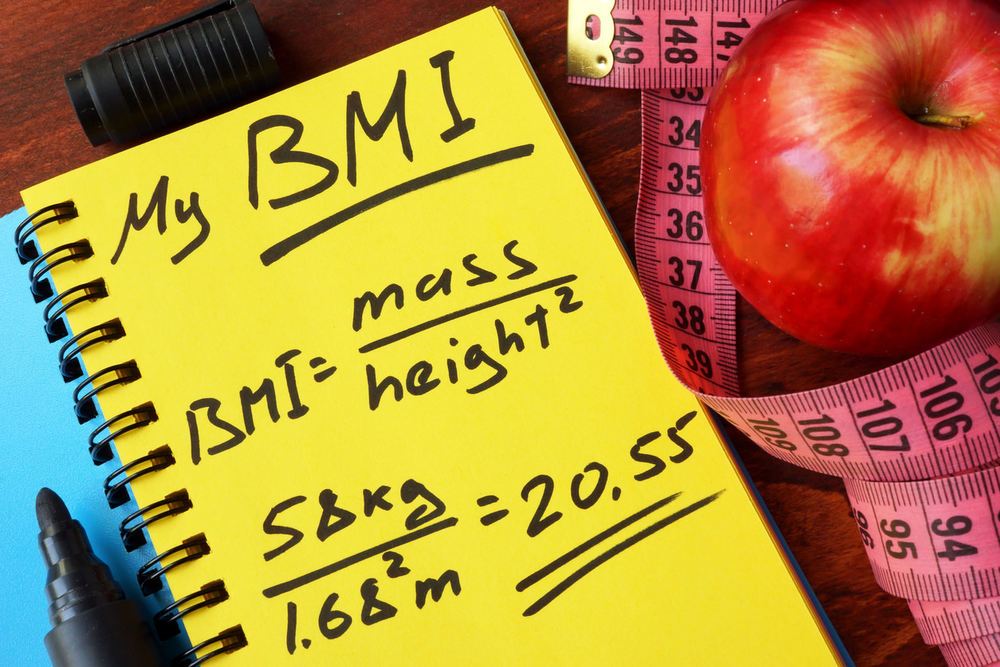 My BMI
BMI = mass
height²
58kg = 20.55
1.68²m
149 148 147
34
35
36
37
38
39
109 108 107 106
95 94